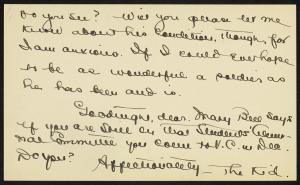 Do you see? Will you please let me
know about his condition, though, for
I am anxious. If I could ever hope
to be as wonderful a soldier as
he has been and is.
Goodnight, dear. Mary Bell says
if you are still on that Students
Committee you come to N.C. in Dec.
Do you?
Affectionately — The Kid.